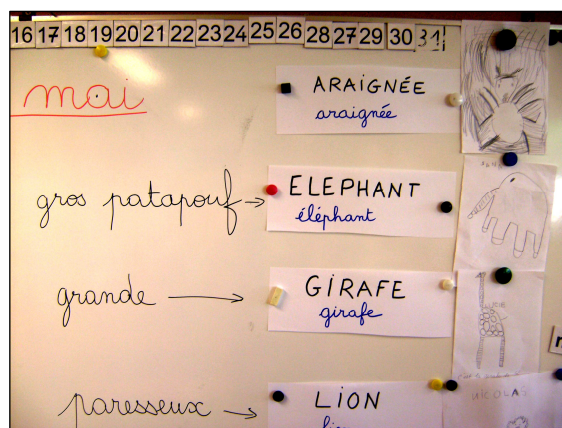 16 17 18 19 20 21 22 23 24 25 26 28 27 29 30 31
mai
ARAIGNÉE
araignée
gros patapouf → ELEPHANT
éléphant
grande → GIRAFE
girafe
LUCIE
paresseux → LION
NICOLAS